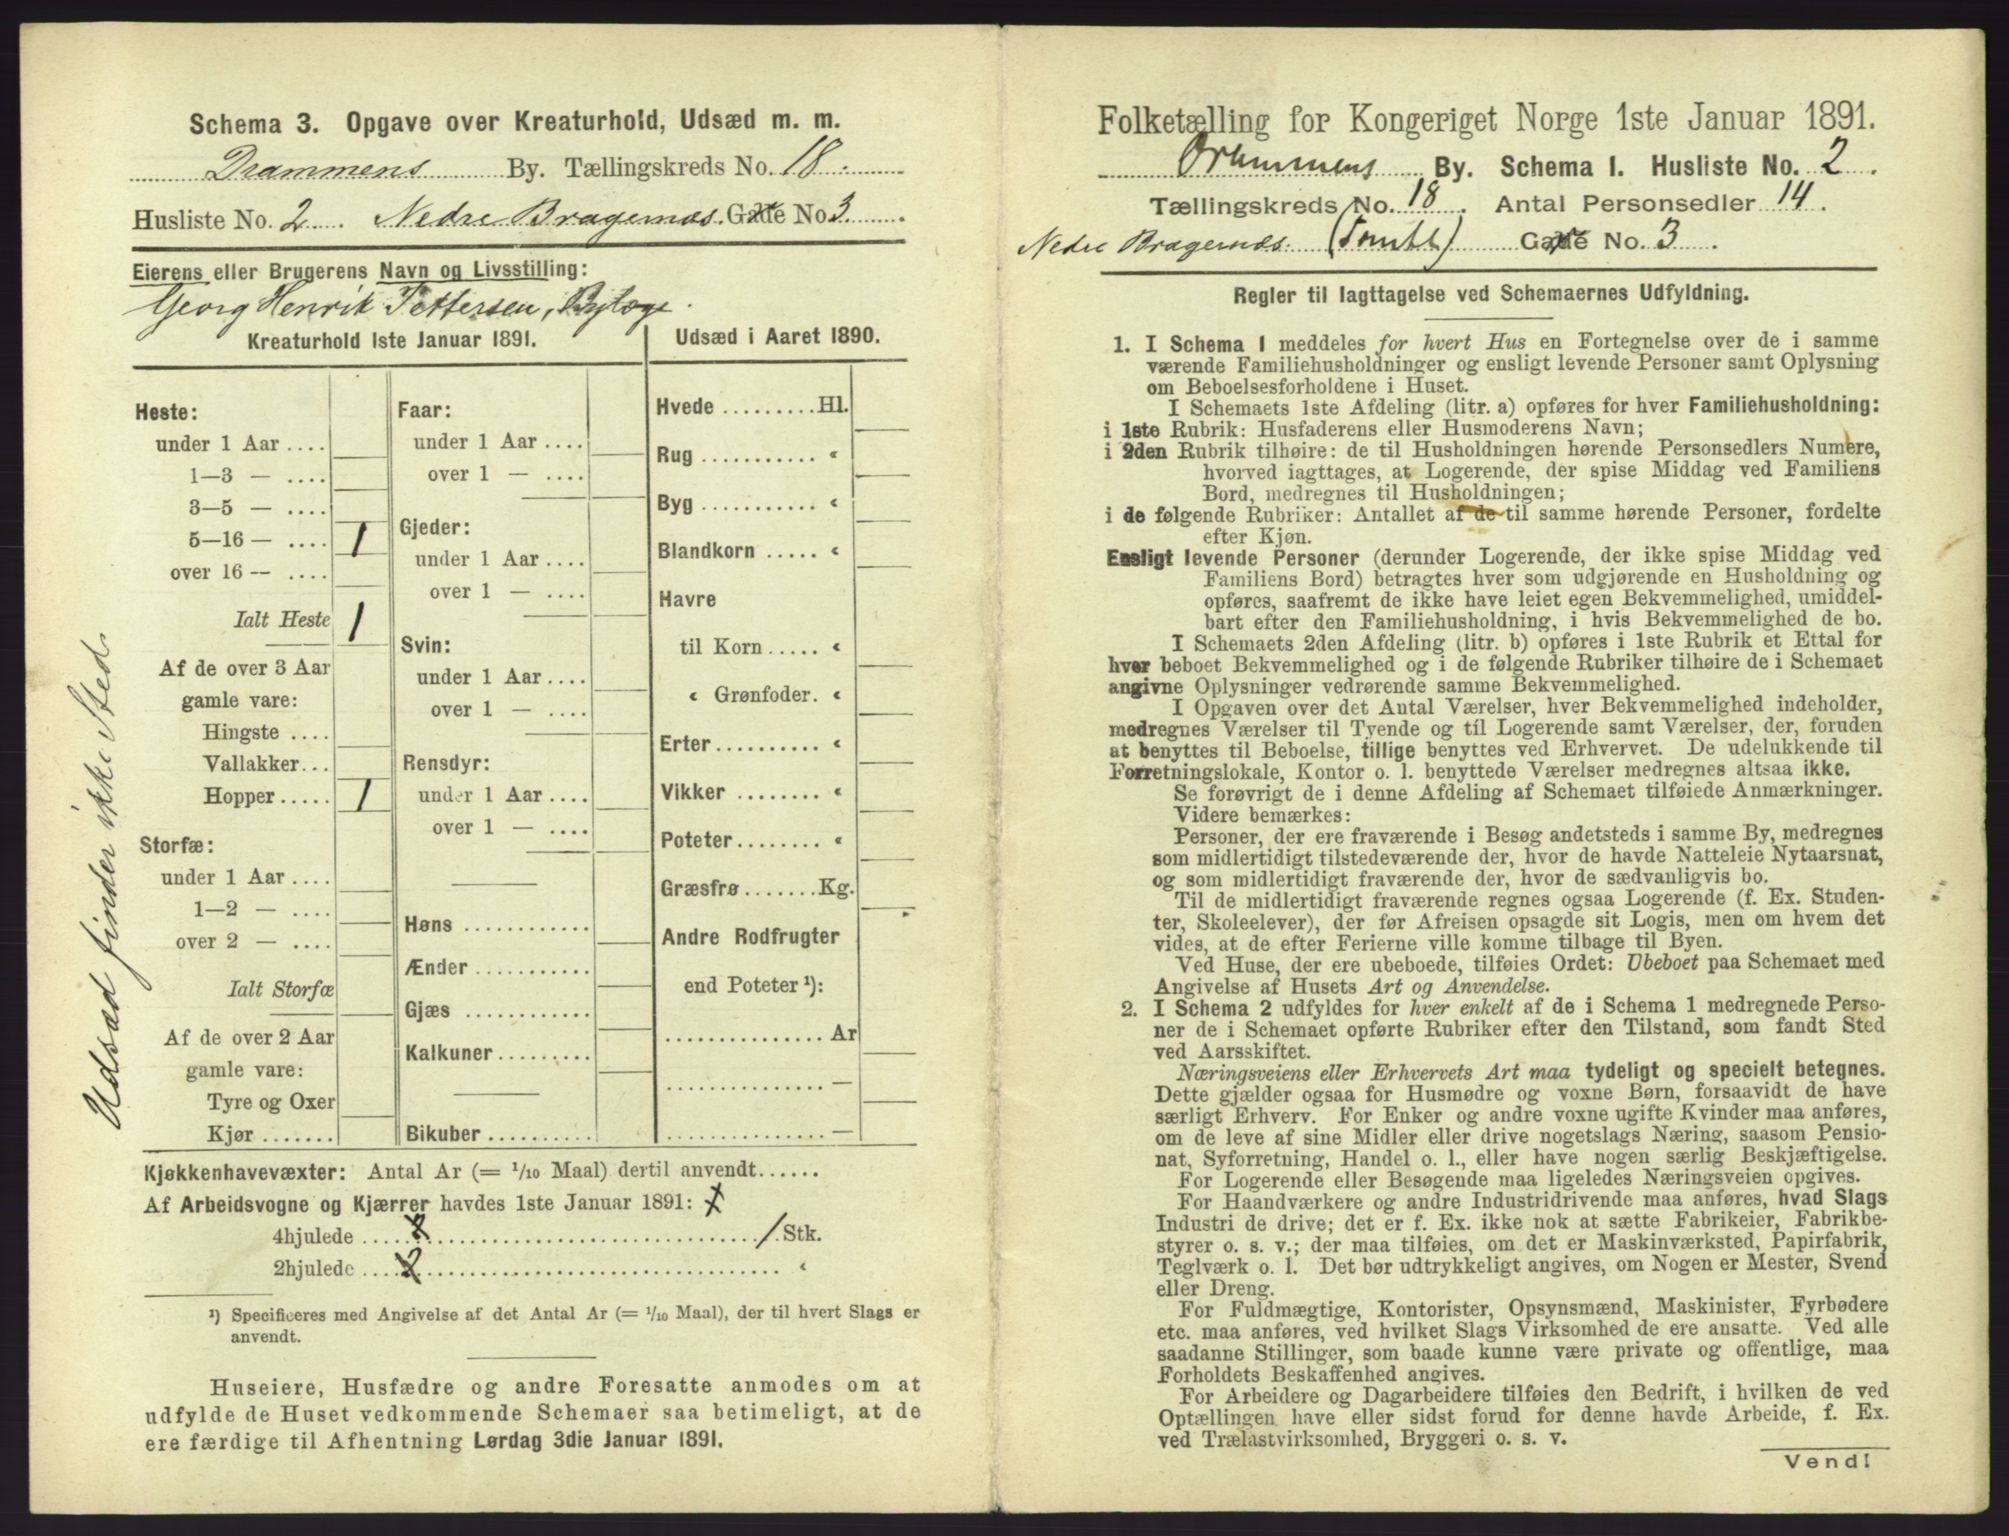 Schema 3. Opgave over Kreaturhold, Udsæd m. m.
Drammens By. Tællingskreds No. 18.
Husliste No. 2. Nedre Bragernæs. Gade No 3.
Eierens eller Brugerens Navn og Livsstilling:
Georg Henrik Pettersen, Bylæge.
Kreaturhold 1ste Januar 1891.
Heste:
under 1 Aar ....
1—3 — ....
3—5 — ....
5—16 — .... 1
over 16 — ....
Ialt Heste 1
Af de over 3 Aar
gamle vare:
Hingste ....
Vallakker...
Hopper..... 1
Storfæ:
under 1 Aar ....
1—2 — ....
over 2 — ....
Ialt Storfæ
Af de over 2 Aar
gamle vare:
Tyre og Oxer
Kjør .......
Faar:
under 1 Aar ....
over 1 — ....
Gjeder:
under 1 Aar ....
over 1 — ....
Svin:
under 1 Aar ....
over 1 — ....
Rensdyr:
under 1 Aar ....
over 1 — ....
Høns ............
Ænder ...........
Gjæs ............
Kalkuner.........
Bikuber ..........
Udsæd i Aaret 1890.
Hvede .........Hl.
Rug ........... «
Byg ........... «
Blandkorn ..... «
Havre
til Korn ..... «
« Grønfoder. «
Erter.......... «
Vikker ........ «
Poteter........ «
Græsfrø.......Kg.
Andre Rodfrugter
end Poteter ¹):
............... Ar
............... —
............... —
Udsæd finder ikke Sted.
Kjøkkenhavevæxter: Antal Ar (= 1/10 Maal) dertil anvendt......
Af Arbeidsvogne og Kjærrer havdes 1ste Januar 1891:
4hjulede ........ 1 Stk.
2hjulede ........ «
¹) Specificeres med Angivelse af det Antal Ar (= 1/10 Maal), der til hvert Slags er
anvendt.
Huseiere, Husfædre og andre Foresatte anmodes om at
udfylde de Huset vedkommende Schemaer saa betimeligt, at de
ere færdige til Afhentning Lørdag 3die Januar 1891.
Folketælling for Kongeriget Norge 1ste Januar 1891.
Drammens By. Schema I. Husliste No. 2.
Tællingskreds No. 18. Antal Personsedler 14.
Nedre Bragernæs. (Tomtl) Gade No. 3.
Regler til Iagttagelse ved Schemaernes Udfyldning.
1. I Schema 1 meddeles for hvert Hus en Fortegnelse over de i samme
værende Familiehusholdninger og ensligt levende Personer samt Oplysning
om Beboelsesforholdene i Huset.
I Schemaets 1ste Afdeling (litr. a) opføres for hver Familiehusholdning:
i 1ste Rubrik: Husfaderens eller Husmoderens Navn;
i 2den Rubrik tilhøire: de til Husholdningen hørende Personsedlers Numere,
hvorved iagttages, at Logerende, der spise Middag ved Familiens
Bord, medregnes til Husholdningen;
i de følgende Rubriker: Antallet af de til samme hørende Personer, fordelte
efter Kjøn.
Ensligt levende Personer (derunder Logerende, der ikke spise Middag ved
Familiens Bord) betragtes hver som udgjørende en Husholdning og
opføres, saafremt de ikke have leiet egen Bekvemmelighed, umiddel-
bart efter den Familiehusholdning, i hvis Bekvemmelighed de bo.
I Schemaets 2den Afdeling (litr. b) opføres i 1ste Rubrik et Ettal for
hver beboet Bekvemmelighed og i de følgende Rubriker tilhøire de i Schemaet
angivne Oplysninger vedrørende samme Bekvemmelighed.
I Opgaven over det Antal Værelser, hver Bekvemmelighed indeholder,
medregnes Værelser til Tyende og til Logerende samt Værelser, der, foruden
at benyttes til Beboelse, tillige benyttes ved Erhvervet. De udelukkende til
Forretningslokale, Kontor o. l. benyttede Værelser medregnes altsaa ikke.
Se forøvrigt de i denne Afdeling af Schemaet tilføiede Anmærkninger.
Videre bemærkes:
Personer, der ere fraværende i Besøg andetsteds i samme By, medregnes
som midlertidigt tilstedeværende der, hvor de havde Natteleie Nytaarsnat,
og som midlertidigt fraværende der, hvor de sædvanligvis bo.
Til de midlertidigt fraværende regnes ogsaa Logerende (f. Ex. Studen-
ter, Skoleelever), der før Afreisen opsagde sit Logis, men om hvem det
vides, at de efter Ferierne ville komme tilbage til Byen.
Ved Huse, der ere ubeboede, tilføies Ordet: Ubeboet paa Schemaet med
Angivelse af Husets Art og Anvendelse.
2. I Schema 2 udfyldes for hver enkelt af de i Schema 1 medregnede Perso-
ner de i Schemaet opførte Rubriker efter den Tilstand, som fandt Sted
ved Aarsskiftet.
Næringsveiens eller Erhvervets Art maa tydeligt og specielt betegnes.
Dette gjælder ogsaa for Husmødre og voxne Børn, forsaavidt de have
særligt Erhverv. For Enker og andre voxne ugifte Kvinder maa anføres,
om de leve af sine Midler eller drive nogetslags Næring, saasom Pensio-
nat, Syforretning, Handel o. l., eller have nogen særlig Beskjæftigelse.
For Logerende eller Besøgende maa ligeledes Næringsveien opgives.
For Haandværkere og andre Industridrivende maa anføres, hvad Slags
Industri de drive; det er f. Ex. ikke nok at sætte Fabrikeier, Fabrikbe-
styrer o. s. v.; der maa tilføies, om det er Maskinværksted, Papirfabrik,
Teglværk o. l. Det bør udtrykkeligt angives, om Nogen er Mester, Svend
eller Dreng.
For Fuldmægtige, Kontorister, Opsynsmænd, Maskinister, Fyrbødere
etc. maa anføres, ved hvilket Slags Virksomhed de ere ansatte. Ved alle
saadanne Stillinger, som baade kunne være private og offentlige, maa
Forholdets Beskaffenhed angives.
For Arbeidere og Dagarbeidere tilføies den Bedrift, i hvilken de ved
Optællingen have eller sidst forud for denne havde Arbeide, f. Ex.
ved Trælastvirksomhed, Bryggeri o. s. v.
Vend!